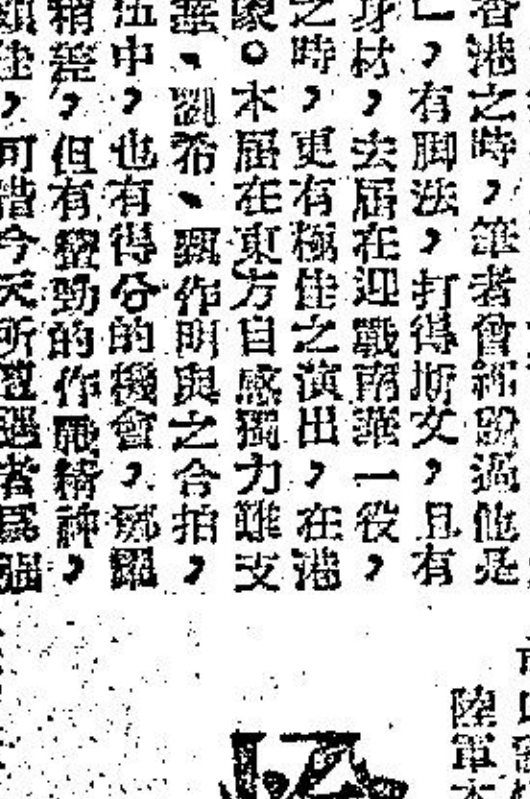 者港之時，筆者曾經說過他是
，有脚法，打得斯文，且有
身材，去屆在迎戰南華一役，
之時，更有極佳之演出，在港
象。本屆在東方自感獨力難支
、劉希、甄作明與之合拍，
伍中，也有得分的機會，
稍差，但有勁的作戰精神，
類佳，可惜今天所遭遇者爲
陸軍